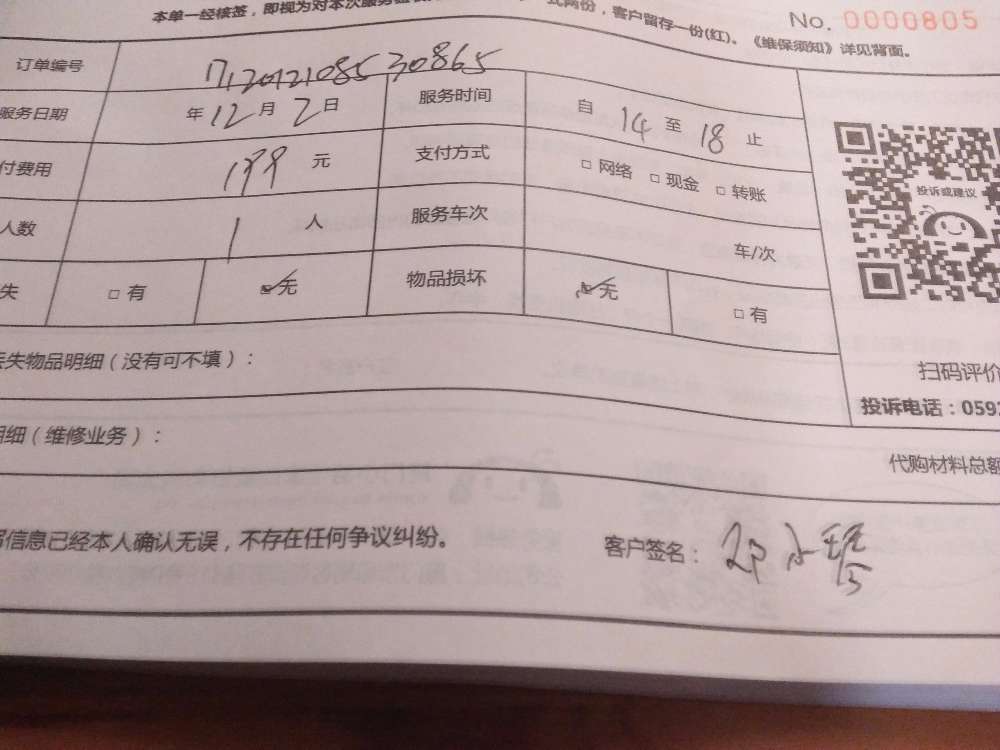 No. 0000805
本单一经核签，即视为对本次服务
式两份，客户留存一份(红)。《维保须知》详见背面。
订单编号
服务日期 年 12 月 2 日 服务时间 自 14 至 18 止
付费用 199 元 支付方式 □ 网络 □ 现金 □ 转账
人数 1 人 服务车次 车/次
失 □ 有 ☑ 无 物品损坏 ☑ 无 □ 有
投诉或建议
扫码评价
投诉电话：0592
丢失物品明细（没有可不填）：
明细（维修业务）：
代购材料总额
信息已经本人确认无误，不存在任何争议纠纷。 客户签名：